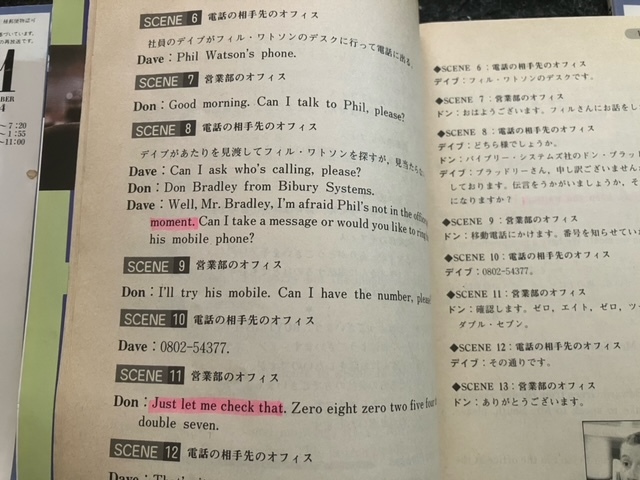 SCENE 6 電話の相手先のオフィス
社員のデイブがフィル・ワトソンのデスクに行って電話に出る。
Dave：Phil Watson's phone.
SCENE 7 営業部のオフィス
Don：Good morning. Can I talk to Phil, please?
SCENE 8 電話の相手先のオフィス
デイブがあたりを見渡してフィル・ワトソンを探すが、見当たら
Dave：Can I ask who's calling, please?
Don：Don Bradley from Bibury Systems.
Dave：Well, Mr. Bradley, I'm afraid Phil's not in the office
moment. Can I take a message or would you like to ring
his mobile phone?
SCENE 9 営業部のオフィス
Don：I'll try his mobile. Can I have the number, please
SCENE 10 電話の相手先のオフィス
Dave：0802-54377.
SCENE 11 営業部のオフィス
Don：Just let me check that. Zero eight zero two five four
double seven.
SCENE 12 電話の相手先のオフィス
Dave：
◆SCENE 6：電話の相手先のオフィス
デイブ：フィル・ワトソンのデスクです。
◆SCENE 7：営業部のオフィス
ドン：おはようございます。フィルさんにお話をし
◆SCENE 8：電話の相手先のオフィス
デイブ：どちら様でしょうか。
ドン：バイブリー・システムズ社のドン・ブラッド
デイブ：ブラッドリーさん、申し訳ございません
しております。伝言をうかがいましょうか、そ
になりますか？
◆SCENE 9：営業部のオフィス
ドン：移動電話にかけます。番号を知らせてい
◆SCENE 10：電話の相手先のオフィス
デイブ：0802-54377。
◆SCENE 11：営業部のオフィス
ドン：確認します。ゼロ、エイト、ゼロ、ツ
ダブル・セブン。
◆SCENE 12：電話の相手先のオフィス
デイブ：その通りです。
◆SCENE 13：営業部のオフィス
ドン：ありがとうございます。
～7:20
～1:55
～11:00